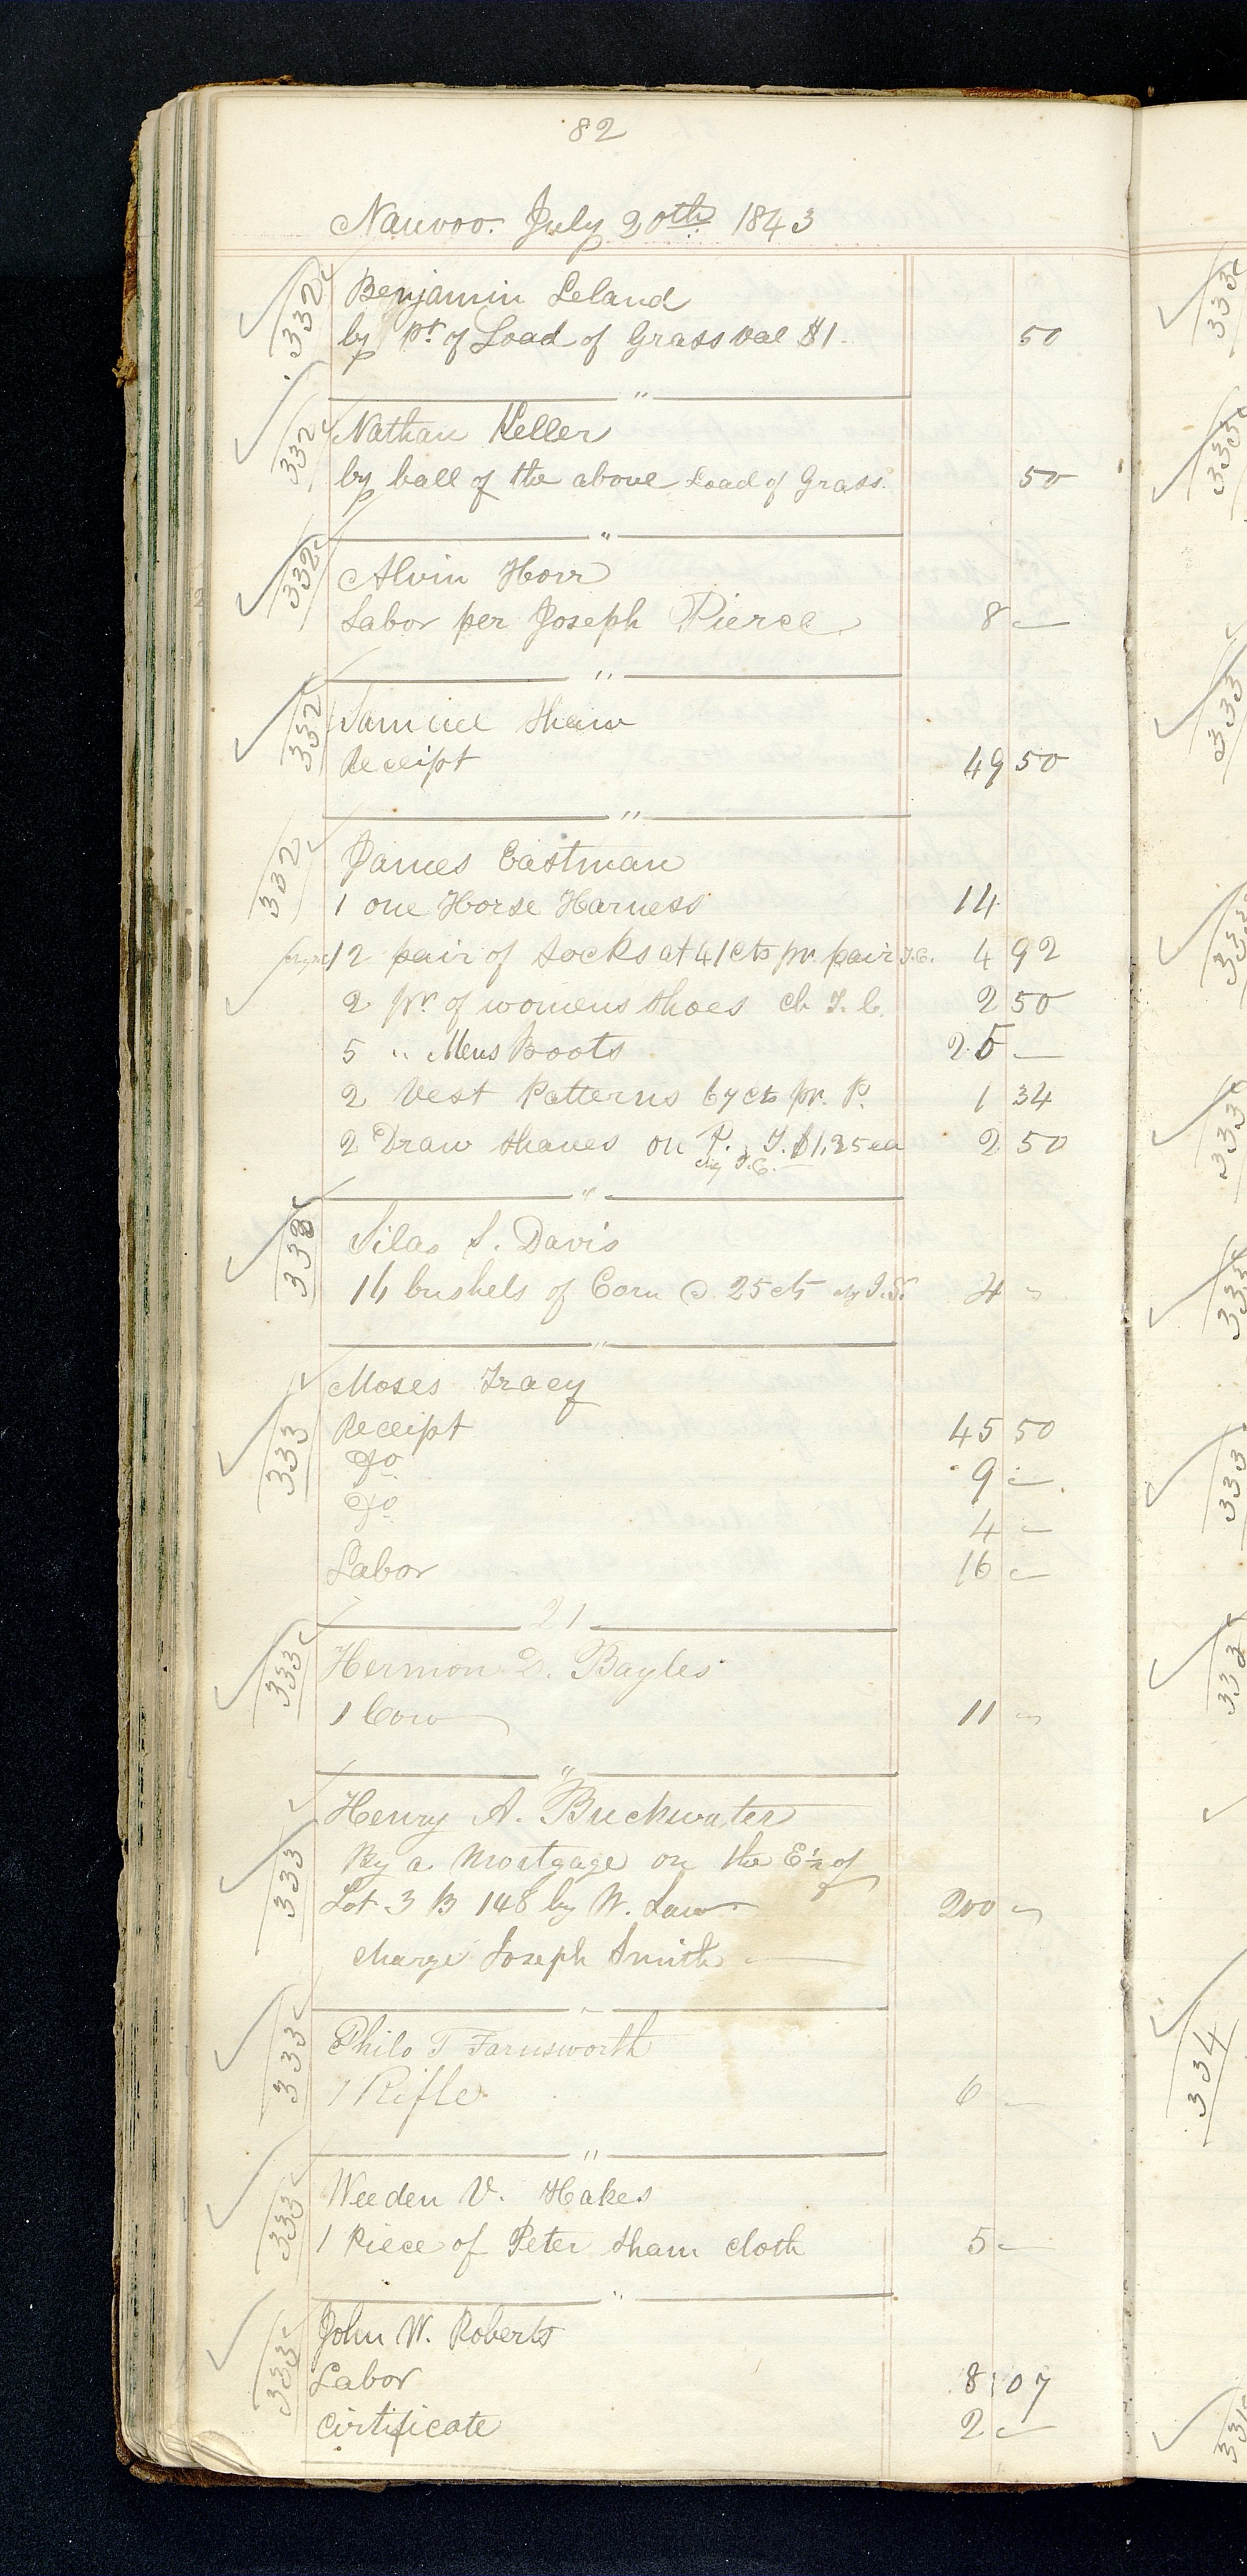 82
Nauvoo. July 20th 1843
332 Benjamin Leland
by pt of Load of Grass val $1. 50
"
332 Nathan Keller
by ball of the above Load of Grass. 50
"
332 Alvin Horr
Labor per Joseph Pierce 8 —
"
332 Samuel Shaw
Receipt 49 50
"
332 James Eastman
1 one Horse Harness 14
12 pair of Socks at 41 cts pr. pair T.C. 4 92
2 pr of womens Shoes ch T. C. 2 50
5 " Mens Boots 25 —
2 Vest Patterns 67 cts pr. P. 1 34
2 Draw Shaves on P. T. $1.25 ea 2 50
chg T.C.
"
333 Silas S. Davis
16 bushels of Corn @ 25 cts chg J.S. 4 —
"
333 Moses Tracy
Receipt 45 50
Do 9 —
Do 4 —
Labor 16 —
21
333 Hermon D. Bayles
1 Cow 11 —
"
333 Henry A. Buckwater
By a Mortgage on the E ½ of
Lot 3 B 148 by W. Law 200 —
charge Joseph Smith —
"
333 Philo T Farnsworth
1 Rifle 6 —
"
333 Weeden V. Hakes
1 Piece of Peter Sham cloth 5 —
"
333 John W. Roberts
Labor 8 07
Cirtificate 2 —
333
333
333
333
333
333
333
333
334